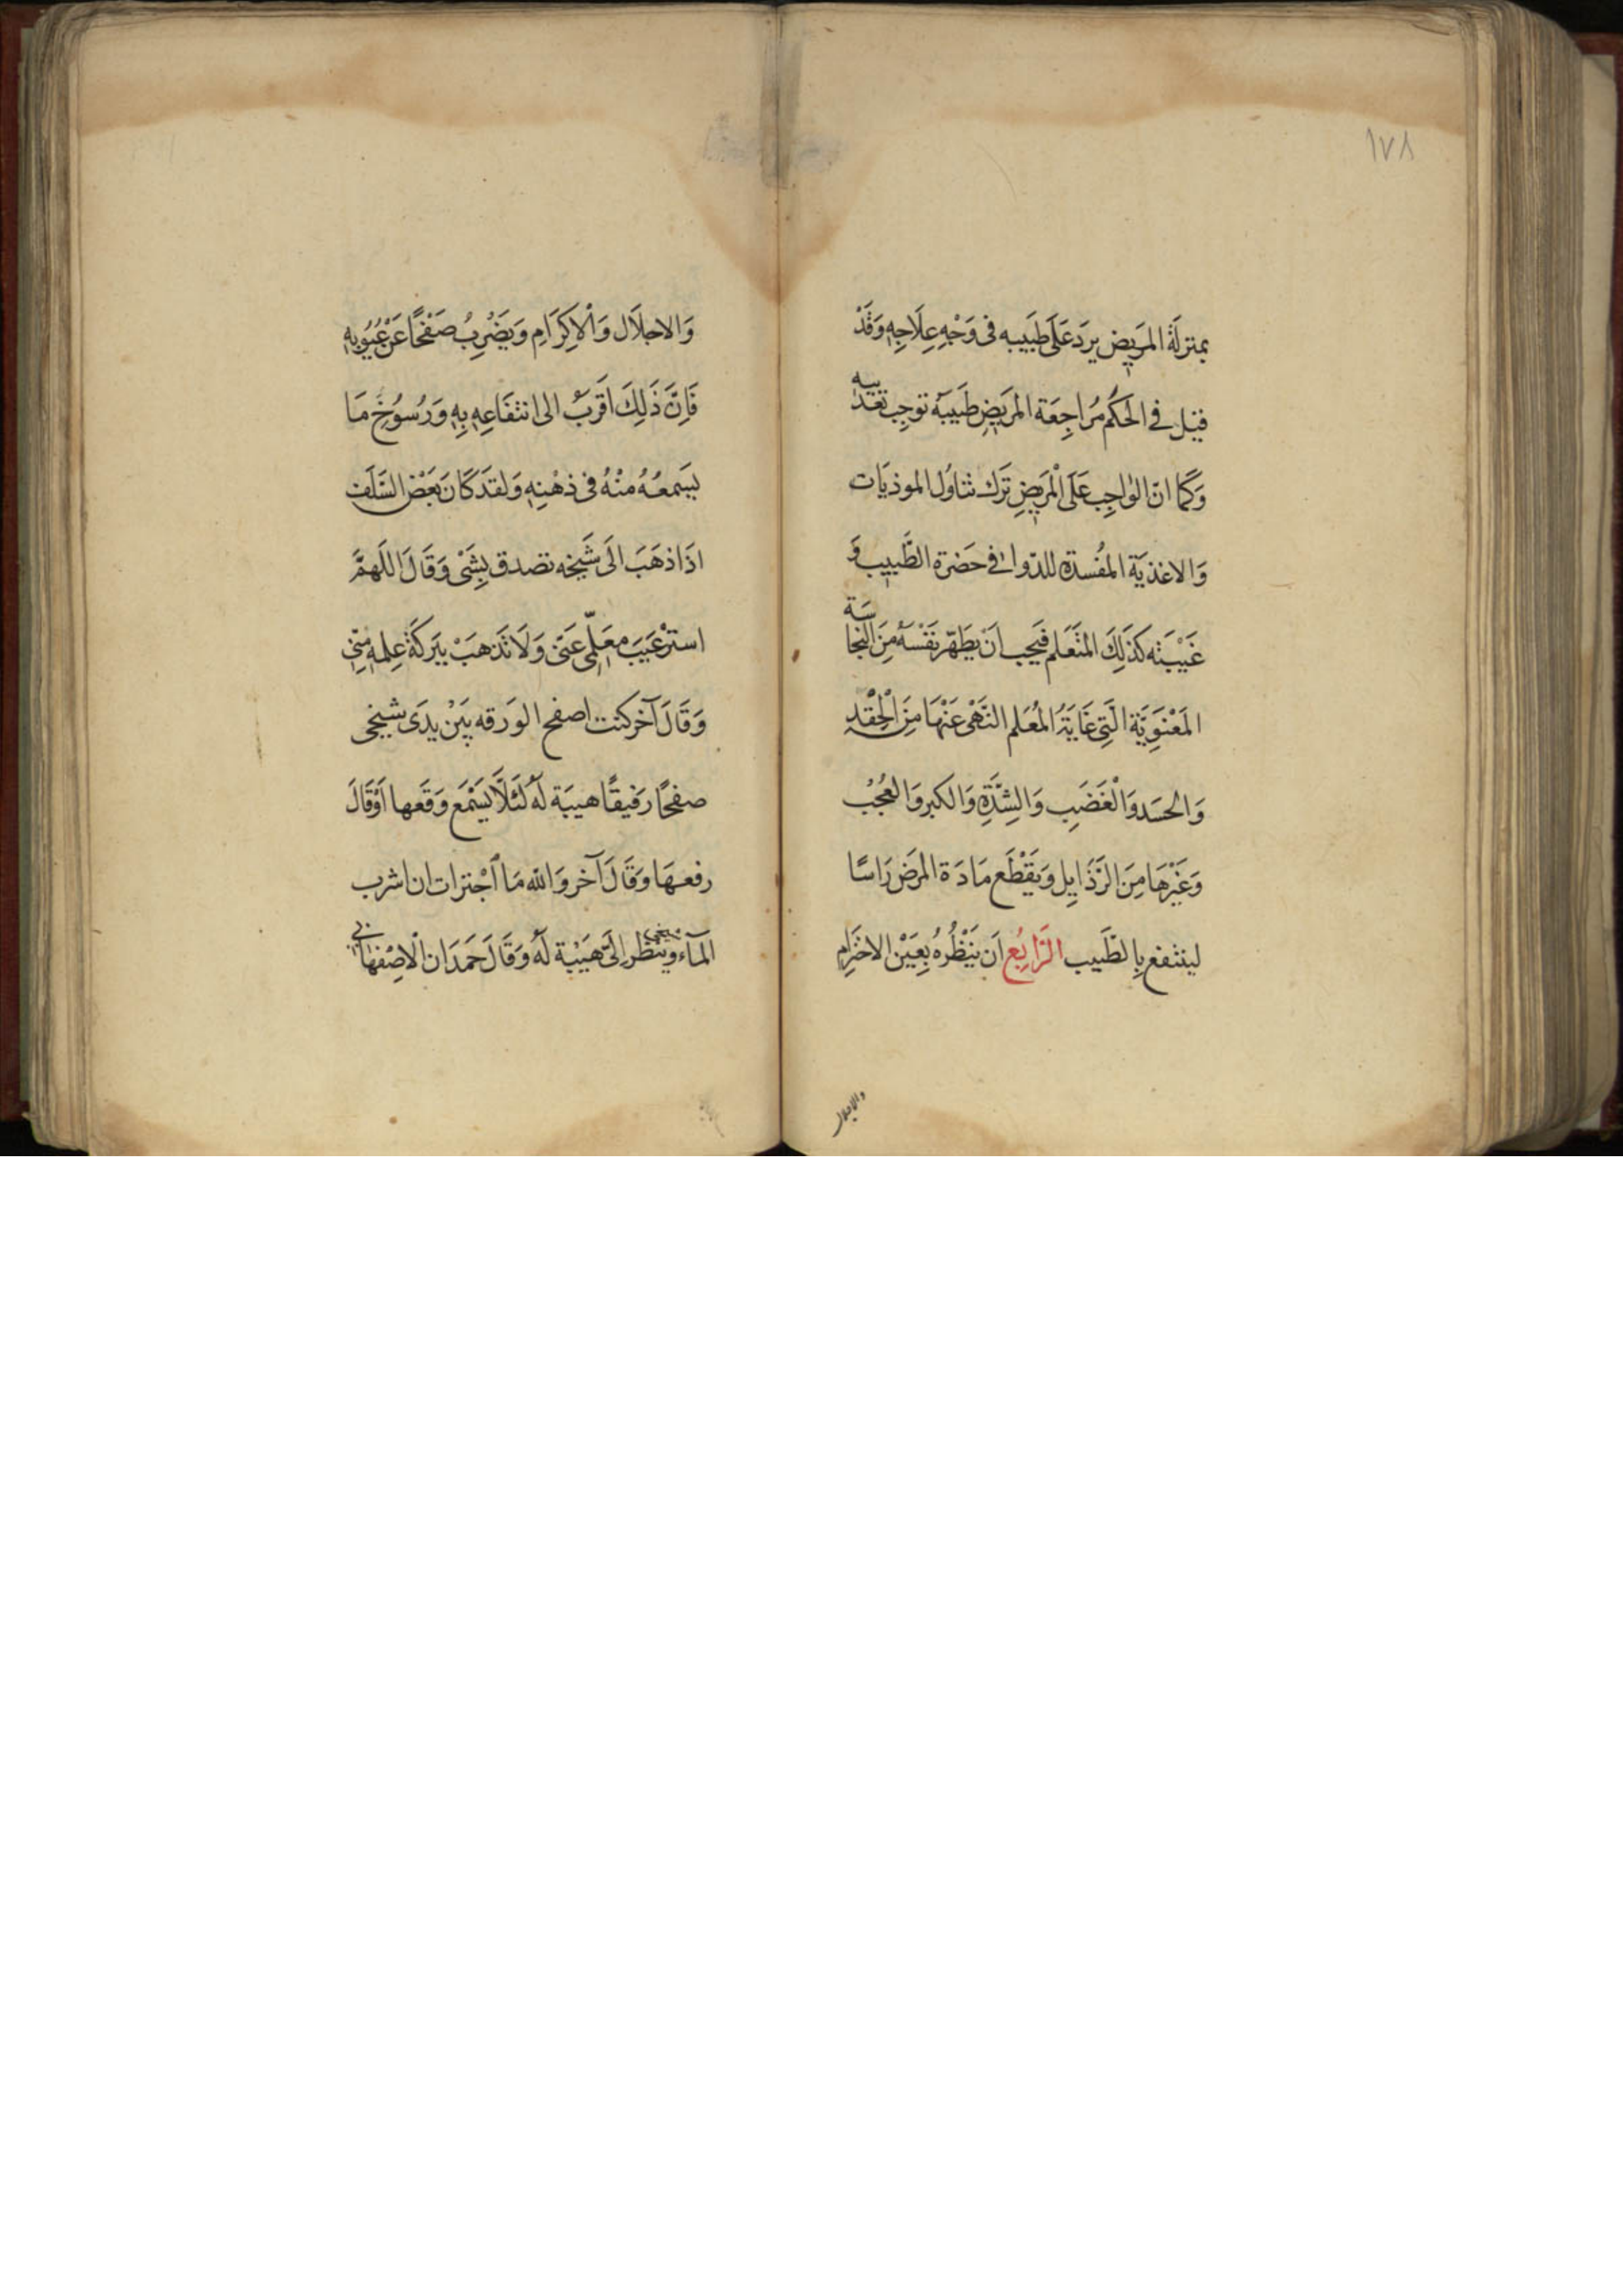 ١٧٨
بمنزلَة المَريض يردَ عَلَى طَبَيبه فى وَجْهِ عِلَاجِهِ وَقَدْ
قيَل فے الحَكَم مُرَاجِعَة المرَيضِ طَبيَبهُ توجب تعذيبه
وَكَمَا انّ الوٰاجِب عَلَى الْمَرَيضِ تَرَك تناوُل الموذيَات
وَالاغذيَة المُفسدَة للدّوا فى حَضرة الطَّبيب وَ
غَيْبَته كَذلِكَ المتَعَلم فيَجب انَ يطَهّر نَفْسَهُ مِنَ النجاسَة
المَعْنَوِيَّة الَّتِى غَايَةُ المُعَلم النَّهْى عَنْهَا مِنَ الْحِقْدِ
وَالحسَد وَالْغَضَبِ وَالشِدَّةِ وَالكبر وَالعُجْبْ
وَغَيْرهَا مِنَ الرَّذَايِل وَيَقْطَع مَادَة المَرَض رَاسًا
لينتفع بِالطَّبيب الرَّابِع اَن يَنْظُرهُ بِعَيْن الاحترَامِ
والاجلال
وَالاجلَال وَالْاِكرَامِ وَيَضْرِبُ صَفْحًا عَنْ عُيُوبِهِ
فَاِنَّ ذَلِكَ اقَرَبُ الى انتفَاعِهِ بِهِ وَرُسوُخِ مَا
يسَمعُهُ منْهُ فى ذهْنِهِ وَلقدَ كَانَ بَعَض السَّلَف
اذَا ذهَبَ الَى شَيخه تصدق بِشَئ وَقَالَ اللَهمَّ
استرْ عَيَبَ معَلِّمى عَنّى وَلَا تَذهبَ ببَركَة عِلمه مِنّى
وَقَالَ آخر كنت اصفح الوَرقه بَيَنْ يدَى شيخى
صفحًا رَفيقًا هيبَة لَهُ لئَلَّا يَسْمَع وَقعَها اَوْقَالَ
رفعهَا وَقَالَ آخر وَالله مَا اجْترات ان اشرب
المآء وَشيخى ينظر اِلَىّ هَيْبَة لَهُ وَقَالَ حَمَدَان الْاِصْفهَانى